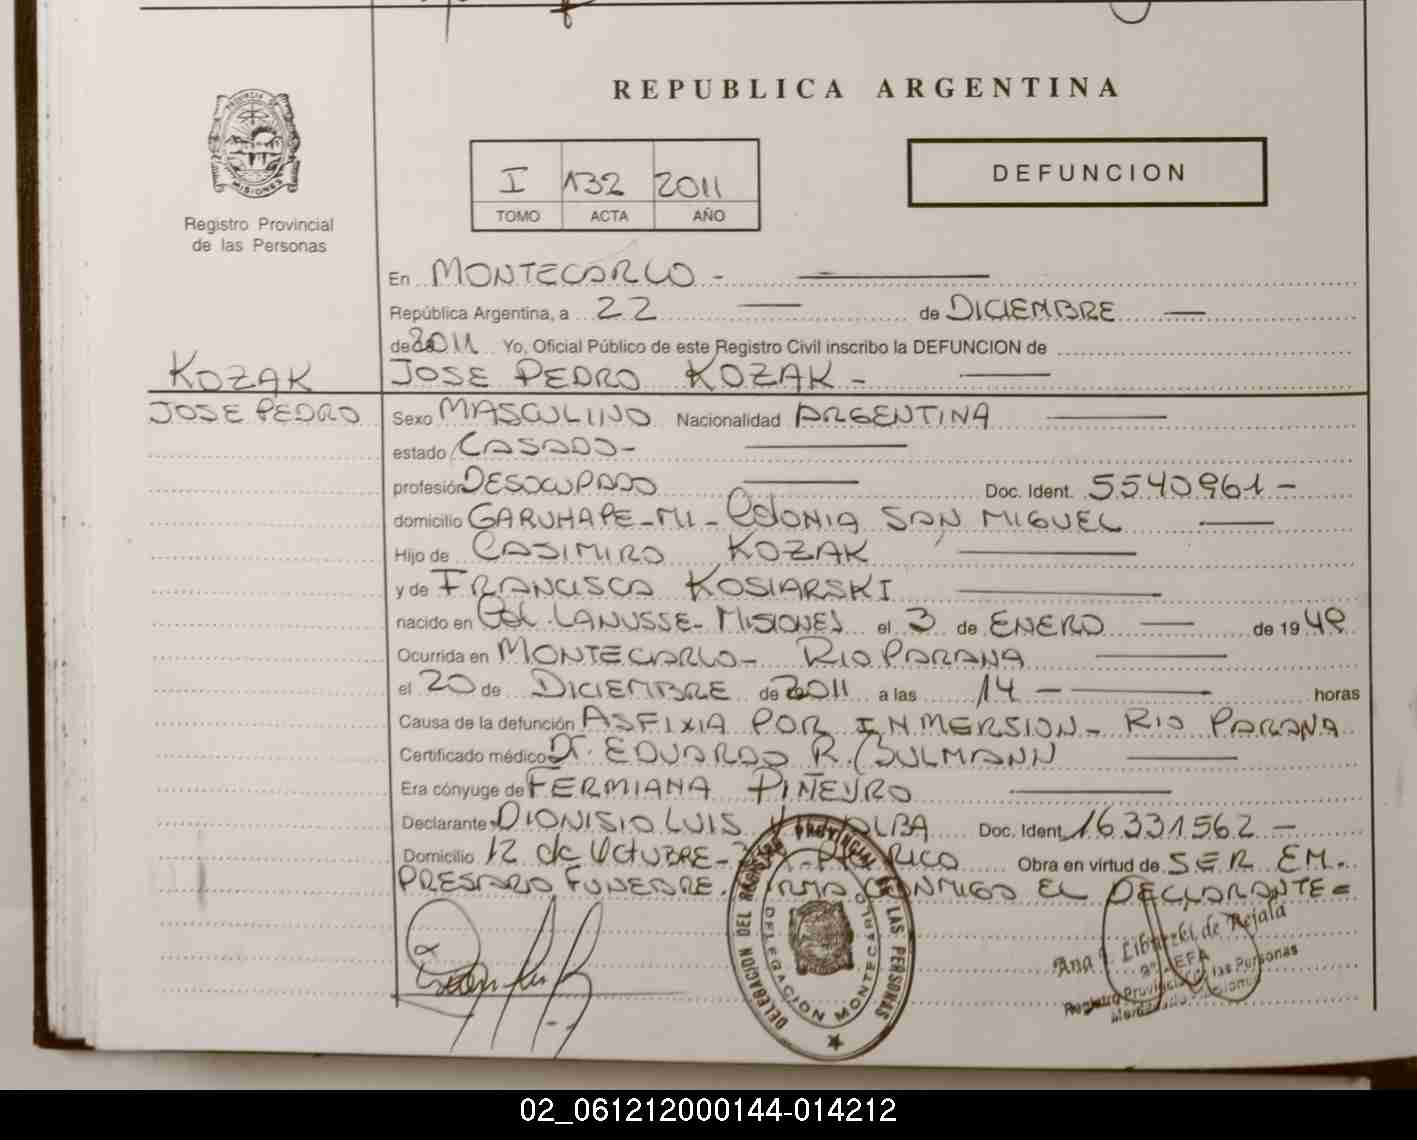 REPUBLICA ARGENTINA
PROVINCIA DE MISIONES
Registro Provincial
de las Personas
I 132 2011
TOMO ACTA AÑO
DEFUNCION
En MONTECARLO -
República Argentina, a 22 de DICIEMBRE
de 2011 Yo, Oficial Público de este Registro Civil inscribo la DEFUNCION de
KOZAK
JOSE PEDRO
JOSE PEDRO KOZAK -
Sexo MASCULINO Nacionalidad ARGENTINA
estado CASADO-
profesión DESOCUPADO Doc. Ident. 5540961 -
domicilio GARUHAPE-MI- COLONIA SAN MIGUEL
Hijo de CASIMIRO KOZAK
y de FRANCISCA KOSIARSKI
nacido en COL. LANUSSE- MISIONES el 3 de ENERO de 1949
Ocurrida en MONTECARLO- RIO PARANA
el 20 de DICIEMBRE de 2011 a las 14 - horas
Causa de la defunción ASFIXIA POR INMERSION- RIO PARANA
Certificado médico Dr. EDUARDO R. BULMANN
Era cónyuge de FERMIANA PIÑEYRO
Declarante DIONISIO LUIS Doc. Ident. 16.331.562 -
Domicilio 12 de OCTUBRE- Obra en virtud de SER EM-
PRESARIO FUNEBRE. FIRMA CONMIGO EL DECLARANTE=
DELEGACION DEL REGISTRO PROVINCIAL DE LAS PERSONAS
DELEGACION MONTECARLO
Ana de Rejala
JEFA
Registro Provincial de las Personas
02_061212000144-014212